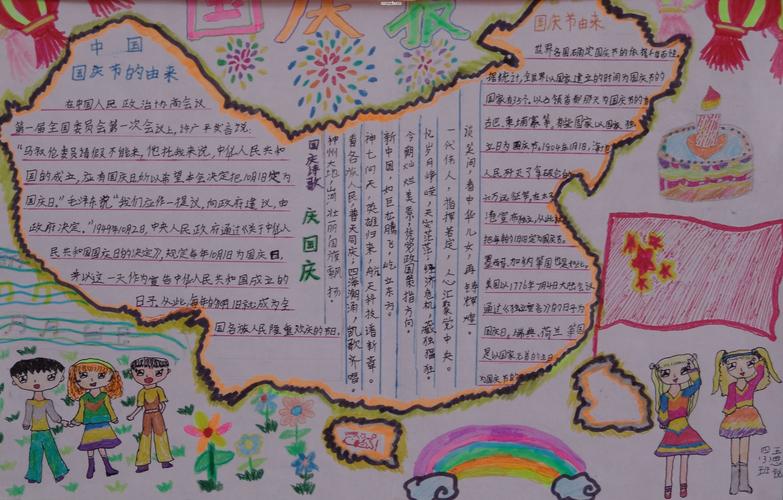 国庆报
中 国
国庆节的由来
在中国人民政治协商会议
第一届全国委员会第一次会议上,许广平发言说:
"马叙伦委员请假不能来,他托我来说,中华人民共和
国的成立,应有国庆日所以希望本会决定把10月1日定为
国庆日。"毛泽东说"我们应作一提议,向政府建议,由
政府决定。"1949年10月2日,中央人民政府通过《关于中华人
民共和国国庆日的决定》,规定每年10月1日为国庆日,
来以这一天作为宣告中华人民共和国成立的
日子,从此,每年的10月1日就成为全
国各族人民隆重欢庆的节日。
国庆诗歌
庆国庆
神州大地,山河壮丽,国旗飘扬。
看各族人民,普天同庆;四海潮涌,凯歌齐唱。
神七问天,英雄归来,航天科技谱新章。
新中国,如巨龙腾飞,屹立东方。
今朝灿烂美景,任党政国策指方向。
忆岁月峥嵘,天灾茫茫;经济危机,
一代伟人,指挥若定,人心汇聚党中央。
谈笑间,看中华儿女,再铸辉煌。
国庆节由来
世界各国确定国庆节的依据千奇百怪。
据统计,全世界以国家建立的时间为国庆节的
国家有35个。以占领首都那天为国庆节的有
古巴、柬埔寨等,有些国家以国家独
立日为国庆节。1804年1月1日,海地
人民歼灭了拿破仑的
六万远征军,在太
港宣布独立,从此
把每年的1月1日定为国庆节。
墨西哥、加纳等国也是如此。
美国以1776年7月4日大陆会议
通过《独立宣言》的日子为
国庆日。瑞典、荷兰等国
是以国家元首的生日
为国庆节的